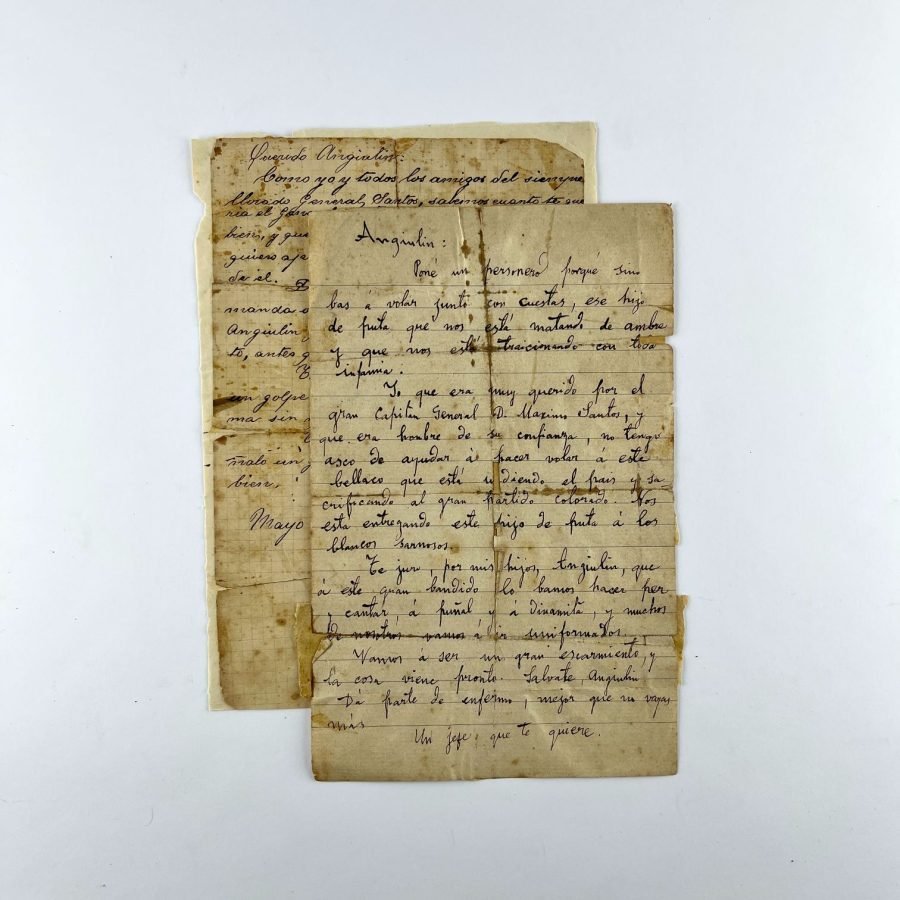 Querido Angiulin:
Como yo y todos los amigos del siempre
llorado General Santos, sabemos cuanto te que
ria el Gene
bien, y que
quiero
de el.
manda
Angiulin
to, antes
un golpe
ma sin
malo un
bien,
Mayo
Angiulin:
Poné un personero porqué sino
bas á volar junto con cuestas, ese hijo
de puta qué nos está matando de ambre
y que nos está traicionando con toda
infamia.
Yo que era muy querido por el
gran Capitan General D. Maximo Santos, y
que era hombre de su confianza, no tengo
asco de ayudar á hacer volar á esté
bellaco que está undiendo el pais y sa
crificando al gran Partido Colorado. Nos
esta entregando este hijo de puta á los
blancos sarnosos.
Te juro, por mis hijos, Angiulin, que
á este gran bandido lo bamos hacer per
y cantar, á puñal y á dinamita, y muchos
de nosotros vamos á ir uniformados.
Vamos á ser un gran escarmiento, y
la cosa viene pronto. Salvate, Angiulin
Dá parte de enfermo, mejor que no vayas
más
Un jefe que te quiere.